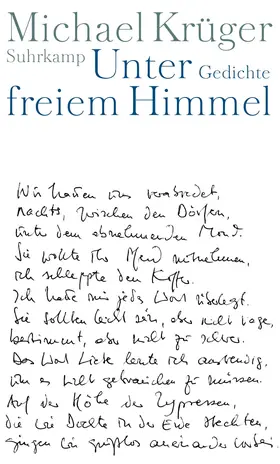 Michael Krüger
Suhrkamp Unter Gedichte
freiem Himmel
Wir hatten uns verabredet,
nachts, zwischen den Dörfern,
unter dem abnehmenden Mond.
Sie wollte ihr Pferd mitnehmen,
ich schleppte den Koffer.
Ich hatte mir jedes Wort überlegt.
Sie sollten leicht sein, aber nicht vage,
bestimmt, aber nicht zu schwer.
Das Wort Liebe lernte ich auswendig,
um es nicht gebrauchen zu müssen.
Auf der Höhe der Zypressen,
die wie Dochte in der Erde steckten,
gingen wir grußlos aneinander vorbei.